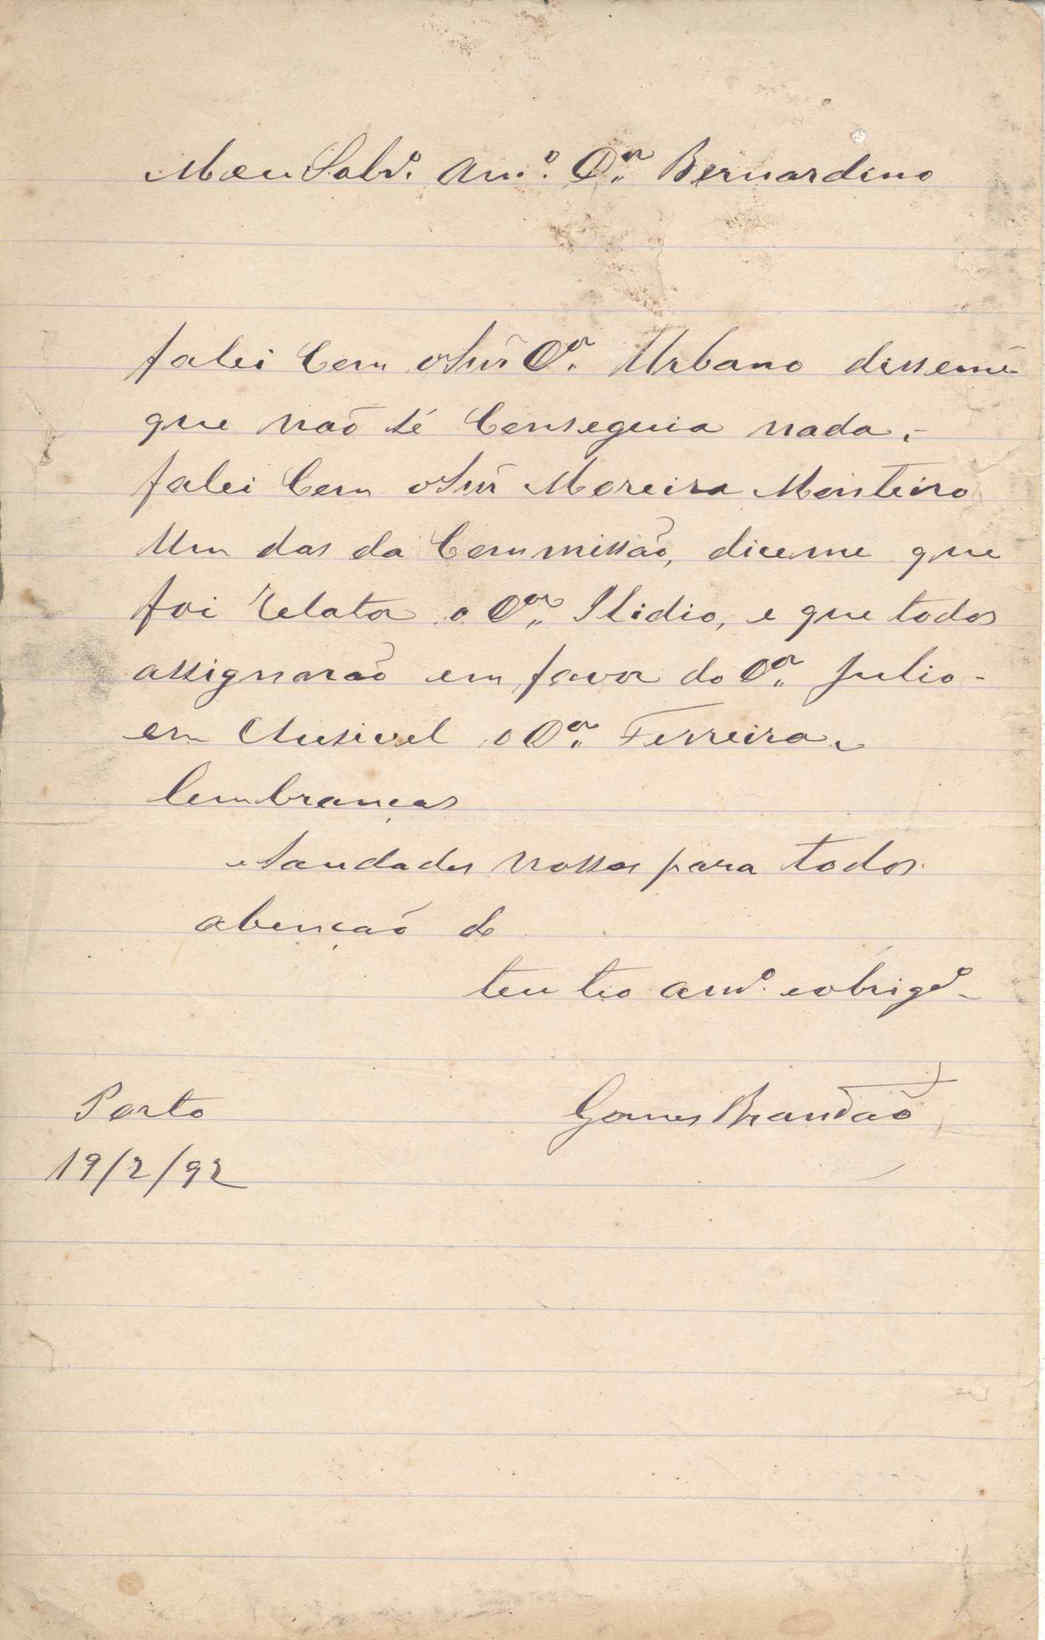 Meu Sobrº. Amº. Dor. Bernardino
falei Com oSnr Dor. Urbano disseme
que naõ sé Conseguia nada,-
falei Com oSnr Moreira Monteiro
Um das da Commissão, diceme que
foi relator o Dor. Ilidio, e que todos
assignaraõ em favor do Dor. Julio-
em Clusivel o Dor. Ferreira,
lembranças
eSaudades nossas para todos
abençaõ do
teu tio amº. eobrigdº.
Porto
Gomes Brandaõ
19/2/92